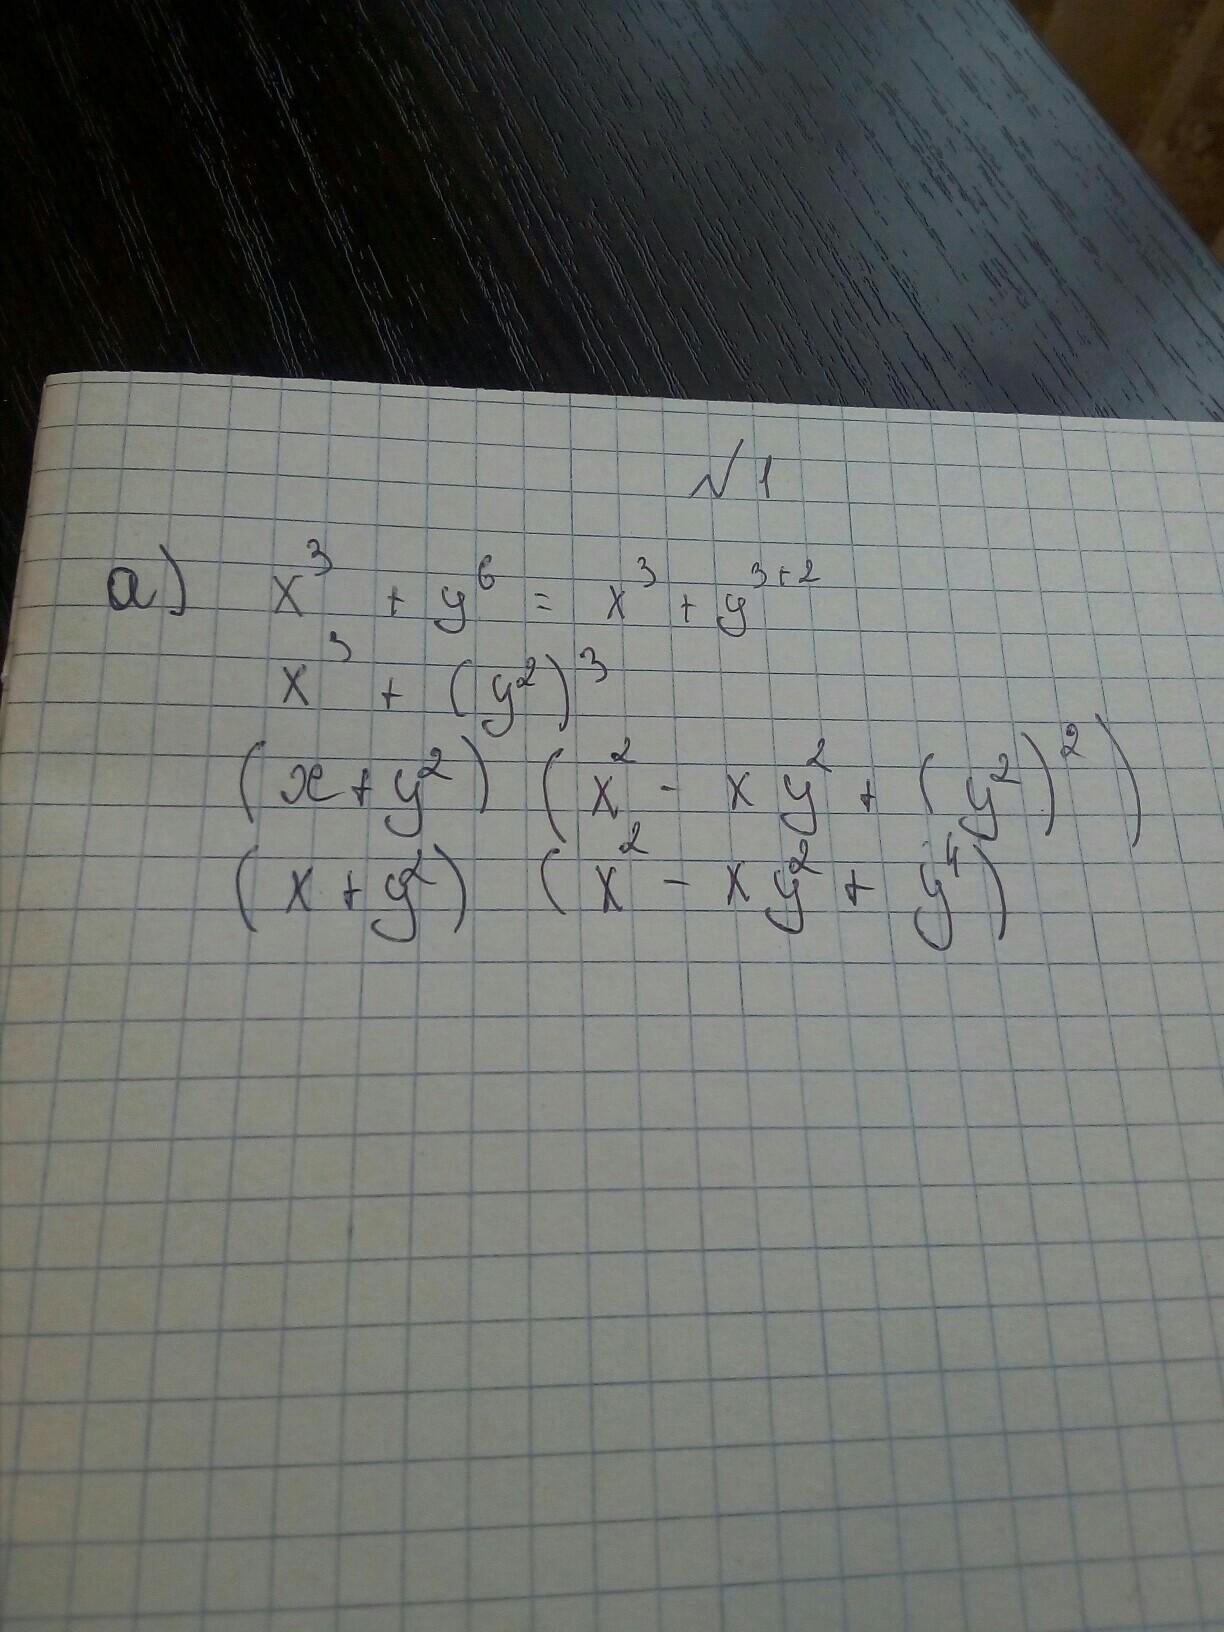 №1
а) x³ + y⁶ = x³ + y³⁺²
x³ + (y²)³
(x + y²) (x² - xy² + (y²)²)
(x + y²) (x² - xy² + y⁴)